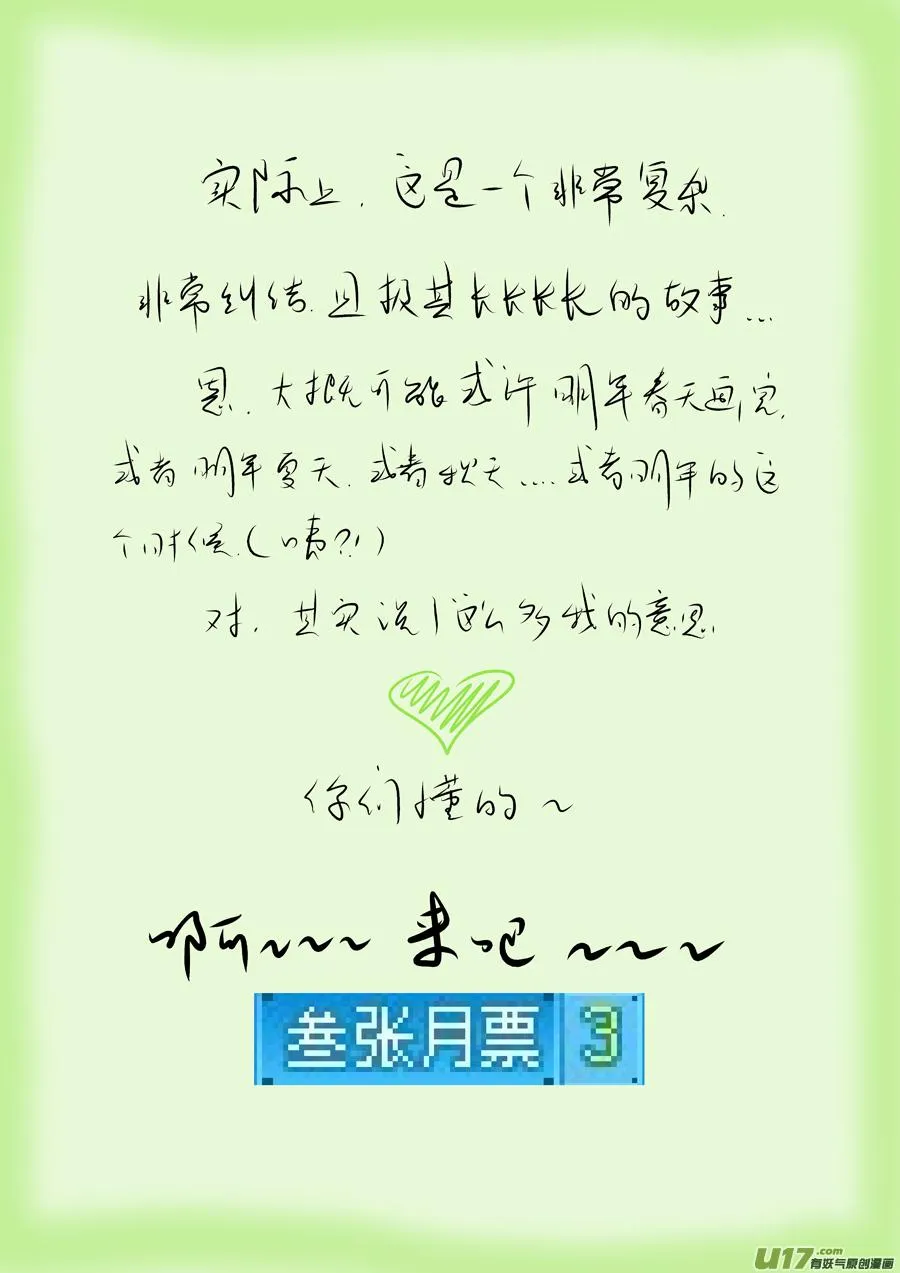 实际上，这是一个非常复杂.
非常纠结.且极其长长长长的故事...
恩.大概可能或许明年春天画完.
或者明年夏天.或者秋天....或者明年的这
个时候.(咦?!)
对，其实说了这么多我的意思
你们懂的~
啊~~~~来吧~~~
叁张月票 3
U17.com
有妖气原创漫画